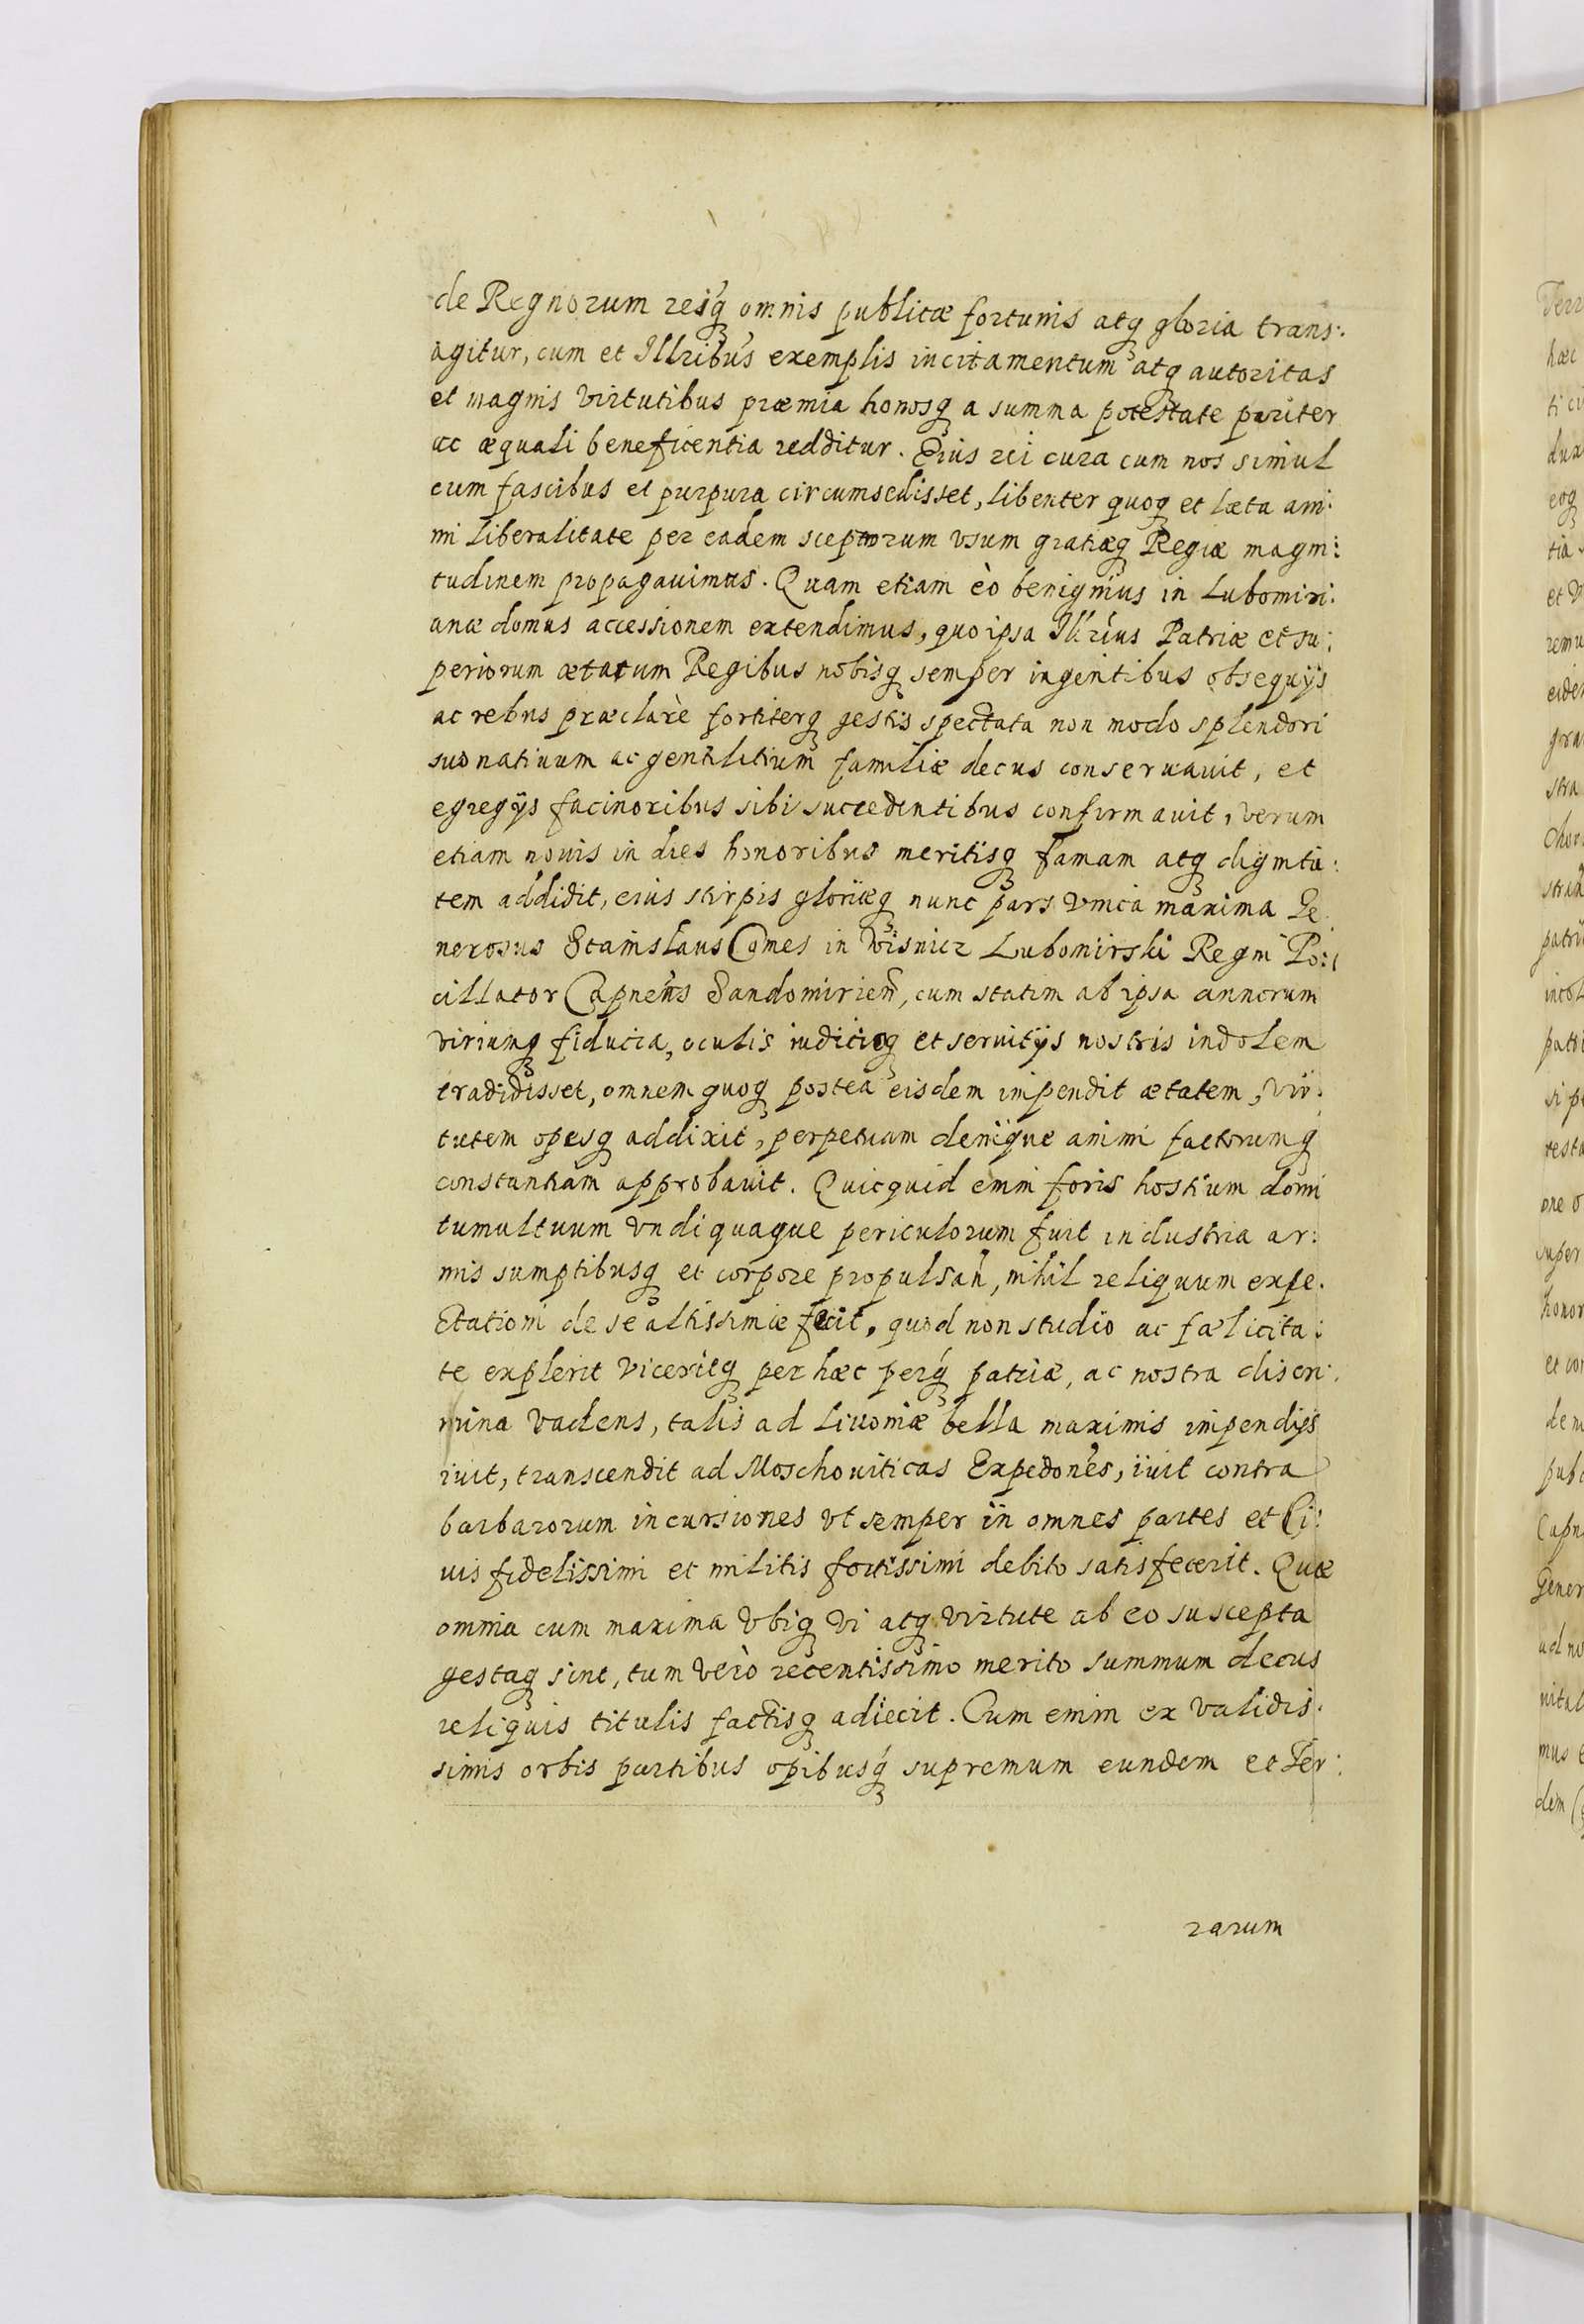 de Regnorum reiq́ omnis publicæ fortunis atq gloria trans:
agitur, cum et Illribus exemplis incitamentum atq autoritas
et magnis virtutibus præmia honosq a summa potestate pariter
ac æquali beneficentia redditur. Eius rei cura cum nos simul
cum fascibus et purpura circumsedisset, libenter quoq et læta ani:
mi liberalitate per eadem sceptrorum vsum gratiæq Regiæ magni:
tudinem propagauimus. Quam etiam eò benignius in Lubomiri:
anæ domus accessionem extendimus, quo ipsa Illrius Patriæ et su:
periorum ætatum Regibus nobisq semper ingentibus obsequijs
ac rebus præclarè fortiterq gestis spectata non modo splendori
suo natiuum ac gentilitium familiæ decus conseruauit, et
egregijs facinoribus sibi succedentibus confirmauit, verum
etiam nouis in dies honoribus meritisq famam atq dignita:
tem addidit, eius stirpis gloriæq nunc pars vnica maxima Ge
nerosus Stanislaus Comes in Wisnicz Lubomirski Regni Po:
cillator Capneus Sandomirien, cum statim ab ipsa annorum
viriumq fiducia, oculis iudicioq et seruitijs nostris indolem
tradidisset, omnem quoq postea eisdem impendit ætatem, vir:
tutem opesq addixit, perpetuam denique animi factorumq
constantiam approbauit. Quicquid enim foris hostium domi
tumultuum vndiquaque periculorum fuit industria ar:
mis sumptibusq et corpore propulsan, nihil reliquum expe.
ctationi de se altissimæ fecit, quod non studio ac fælicita:
te explerit viceritq per hæc perq́ patriæ, ac nostra discri:
mina vadens, talis ad Liuoniæ bella maximis impendijs
iuit, transcendit ad Moschouiticas Expedones, iuit contra
barbarorum incursiones vt semper in omnes partes et Ci:
uis fidelissimi et militis fortissimi debito satisfecerit. Quæ
omnia cum maxima vbiq vi atq virtute ab eo suscepta
gestaq sint, tum verò recentissimo merito summum decus
reliquis titulis factisq adiecit. Cum enim ex validis.
simis orbis partibus opibusq́ supremum eundem et Ter:
rarum